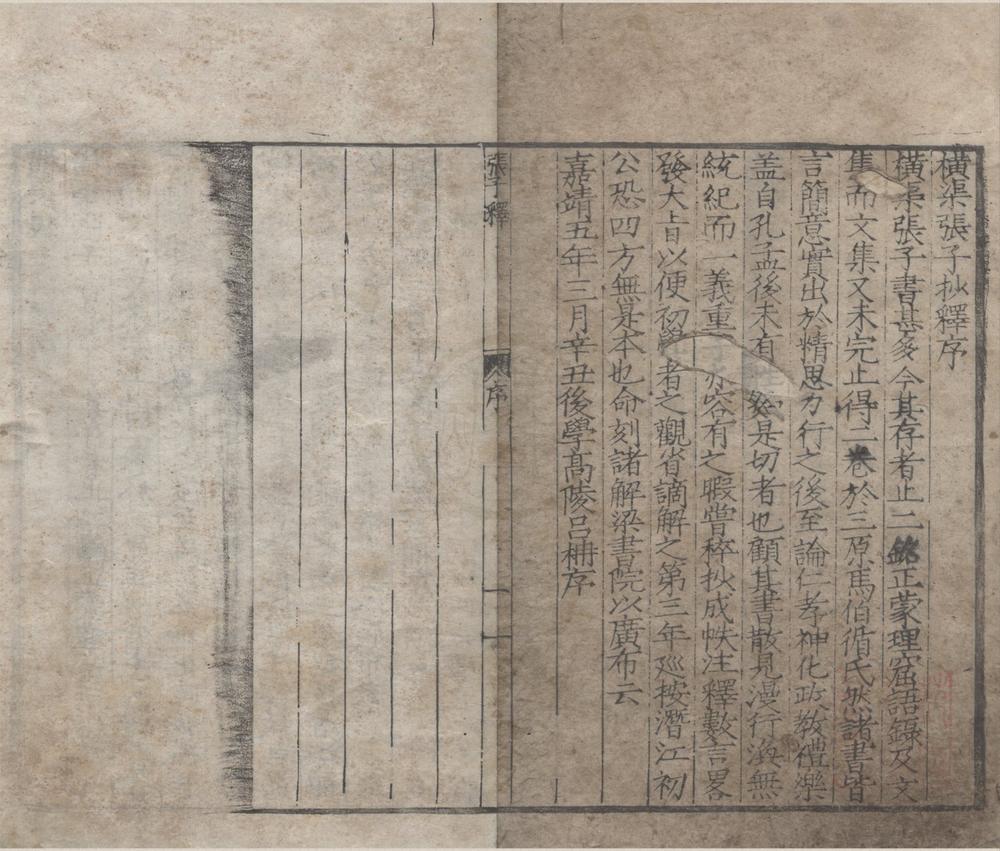 橫渠張子抄釋序
橫渠張子書甚多今其存者止二銘正蒙理窟語錄及文
集而文集又未完止得二卷於三原馬伯循氏然諸書皆
言簡意實出於精思力行之後至論仁孝神化政教禮樂
蓋自孔孟後未有能如是切者也顧其書散見漫行渙無
統紀而一義重出亦容有之暇嘗稡抄成帙注釋數言畧
發大㫖以便初學者之觀省謫解之第三年廵按潛江初
公恐四方無是本也命刻諸解梁書院以廣布云
嘉靖五年三月辛丑後學高陵呂柟序
張子釋
序
一